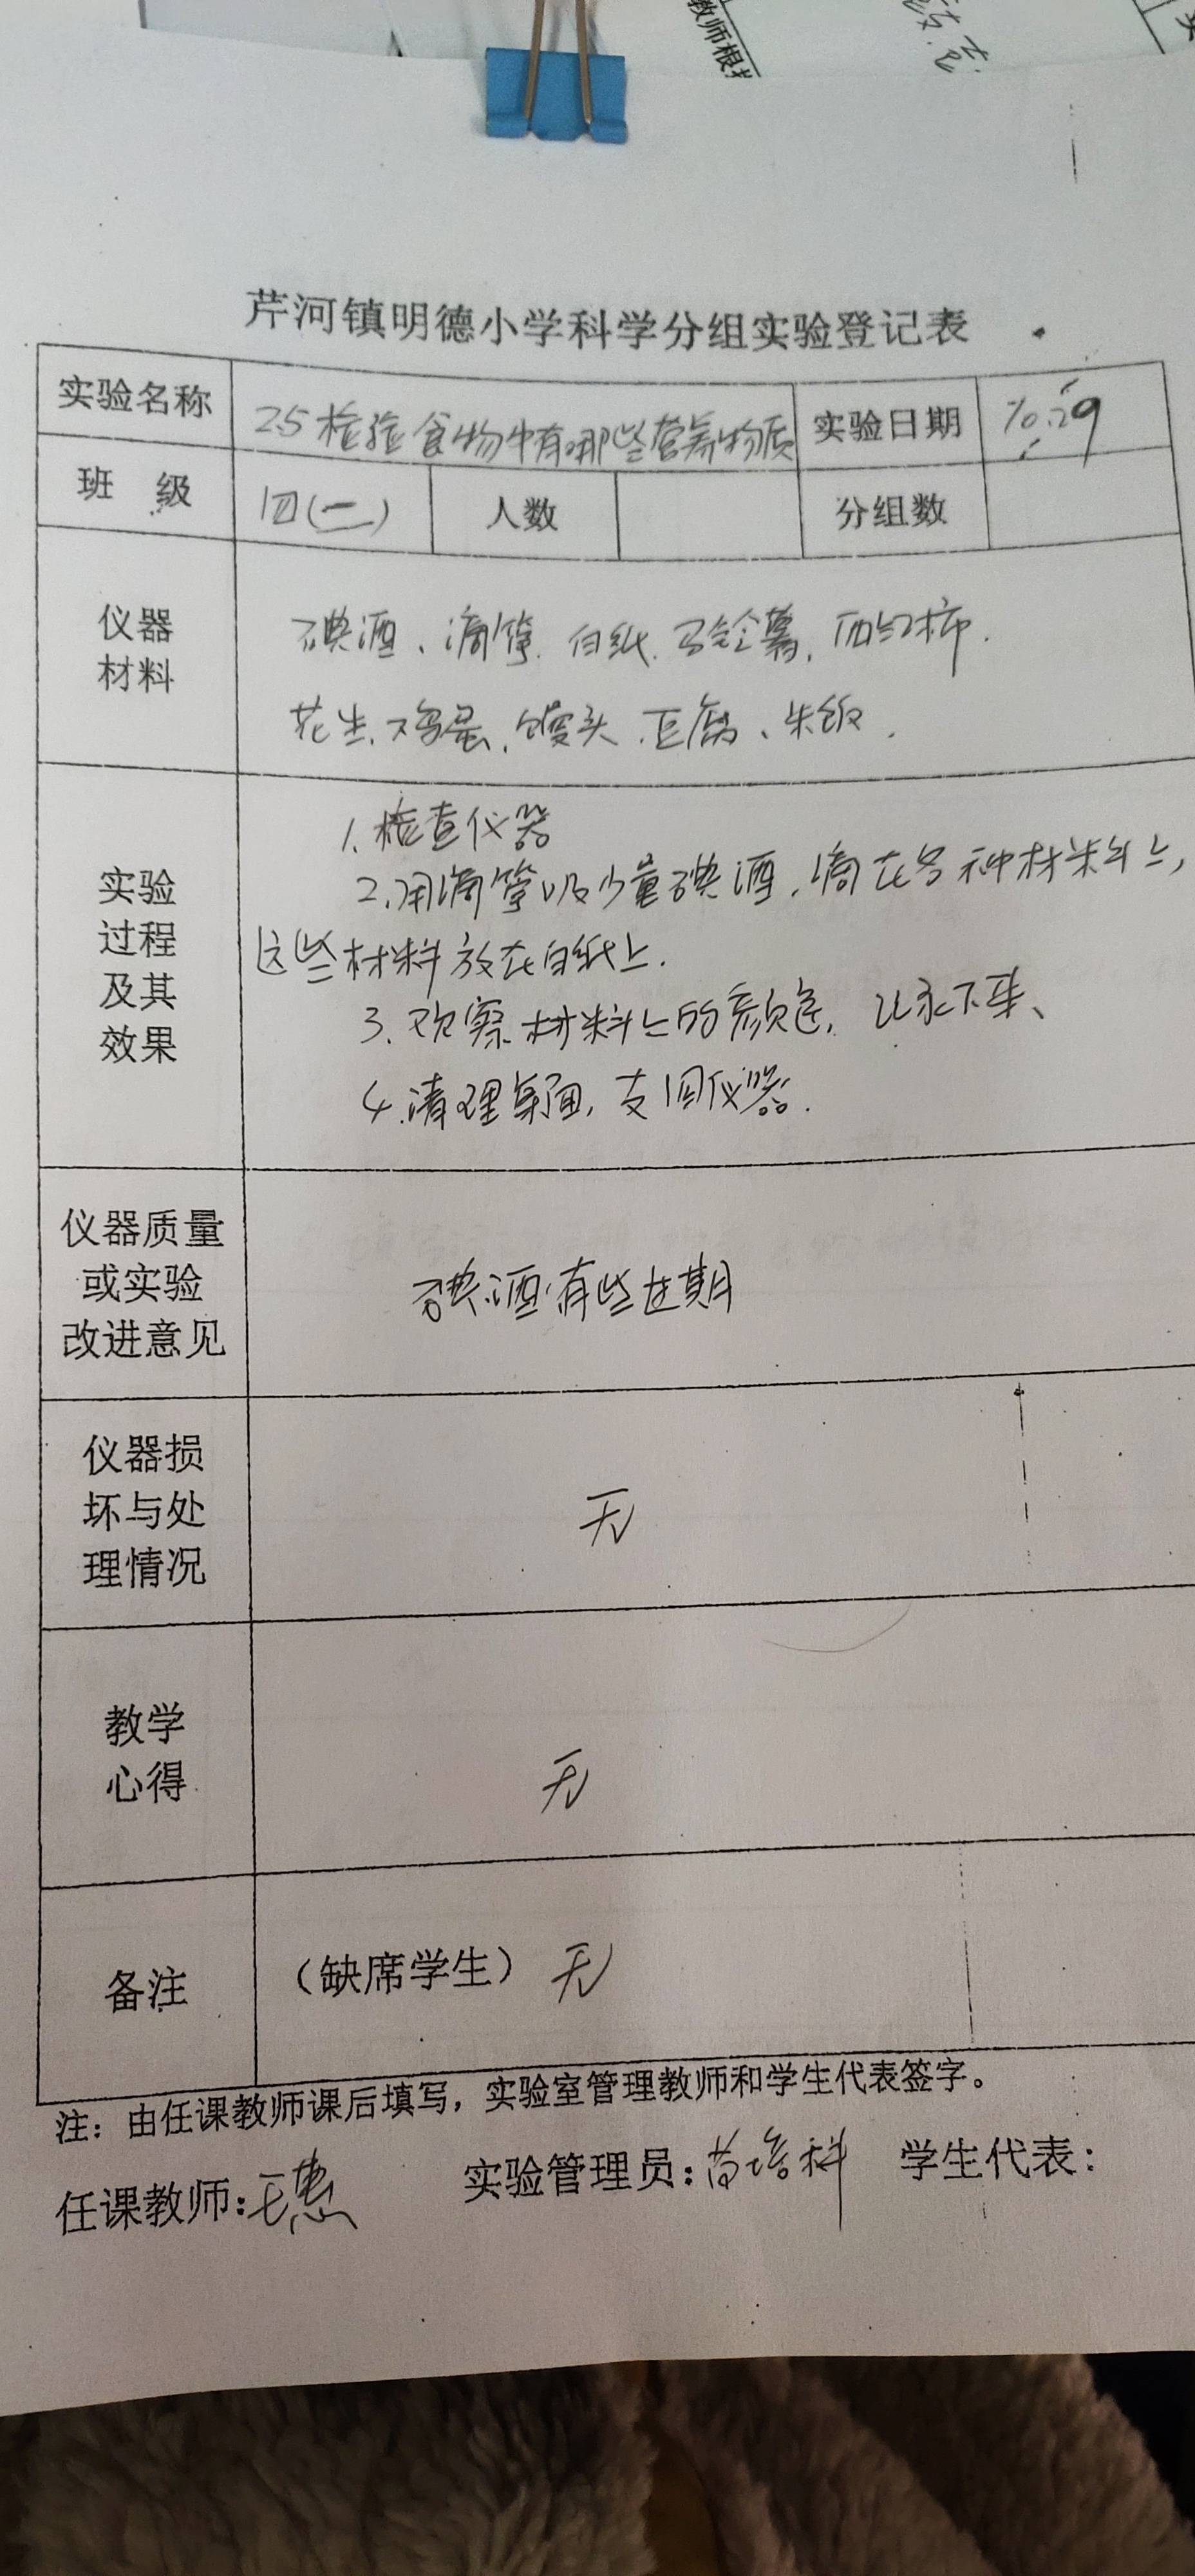 教师根
芹河镇明德小学科学分组实验登记表
实验名称 25检验食物中有哪些营养物质 实验日期 10.29
班 级 四(一) 人数 分组数
仪器
材料
碘酒、滴管.白纸.马铃薯.西红柿.
花生.鸡蛋.馒头.豆腐、米饭.
实验
过程
及其
效果
1.检查仪器
2.用滴管吸少量碘酒.滴在各种材料上,
这些材料放在白纸上.
3.观察材料上的颜色,记录下来、
4.清理桌面,交回仪器.
仪器质量
或实验
改进意见
碘酒有些过期
仪器损
坏与处
理情况
无
教学
心得
无
备注 (缺席学生) 无
注:由任课教师课后填写,实验室管理教师和学生代表签字。
任课教师:王惠 实验管理员:苗培科 学生代表: